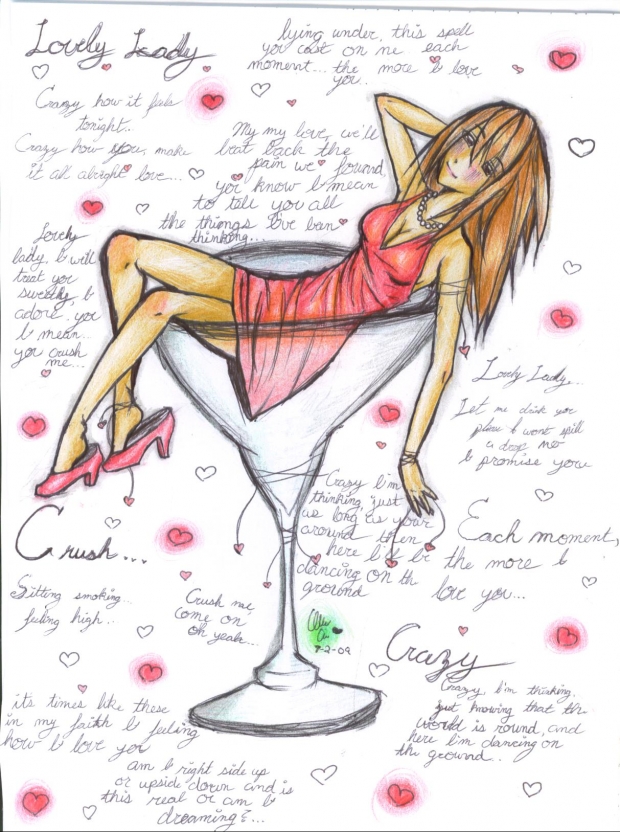 Lovely Lady
lying under this spell
you cast on me each
moment... the more I love
you..
Crazy how it feels
tonight...
Crazy how you make
it all alright love...
My my love, we'll
beat back the
pain we found,
you know I mean
to tell you all
the things I've been
thinking...
Lovely
lady, I will
treat you
sweetly, I
adore you
I mean...
you crush
me...
Lovely Lady...
Let me drink you
please I wont spill
a drop no
I promise you
Crazy I'm
thinking, just
as long as your
around then
here I'd be
dancing on th
ground
Each moment,
the more I
love you...
Crush...
Sitting smoking...
feeling high...
Crush me
come on
oh yeah...
7-2-09
Crazy
Crazy I'm thinking.
just knowing that the
world is round, and
here I'm dancing on
the ground..
its times like these
in my faith I feeling
how I love you
am I right side up
or upside down and is
this real or am I
dreaming?...